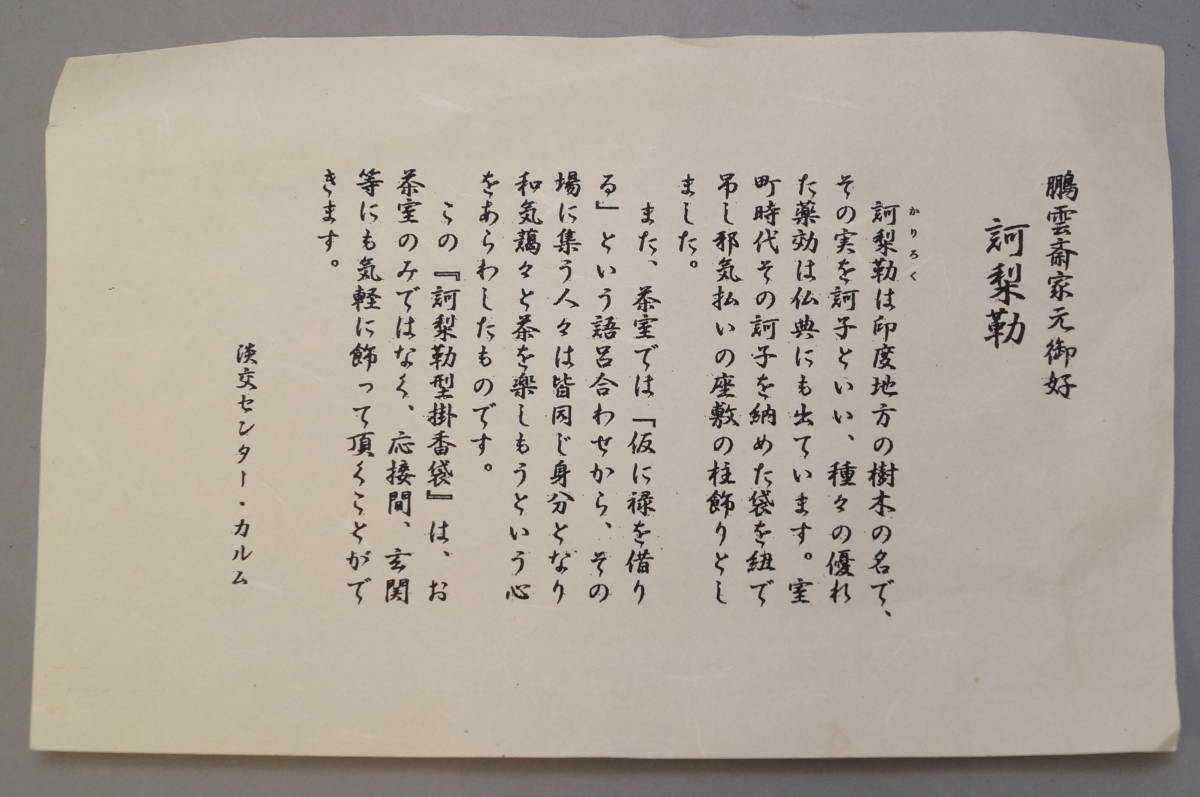 鵬雲斎家元御好
訶梨勒
かりろく
訶梨勒は印度地方の樹木の名で、
その実を訶子といい、種々の優れ
た薬効は仏典にも出ています。室
町時代その訶子を納めた袋を紐で
吊し邪気払いの座敷の柱飾りとし
ました。
また、茶室では「仮に禄を借り
る」という語呂合わせから、その
場に集う人々は皆同じ身分となり
和気藹々と茶を楽しもうという心
をあらわしたものです。
この『訶梨勒型掛香袋』は、お
茶室のみではなく、応接間、玄関
等にも気軽に飾って頂くことがで
きます。
淡交センター・カルム